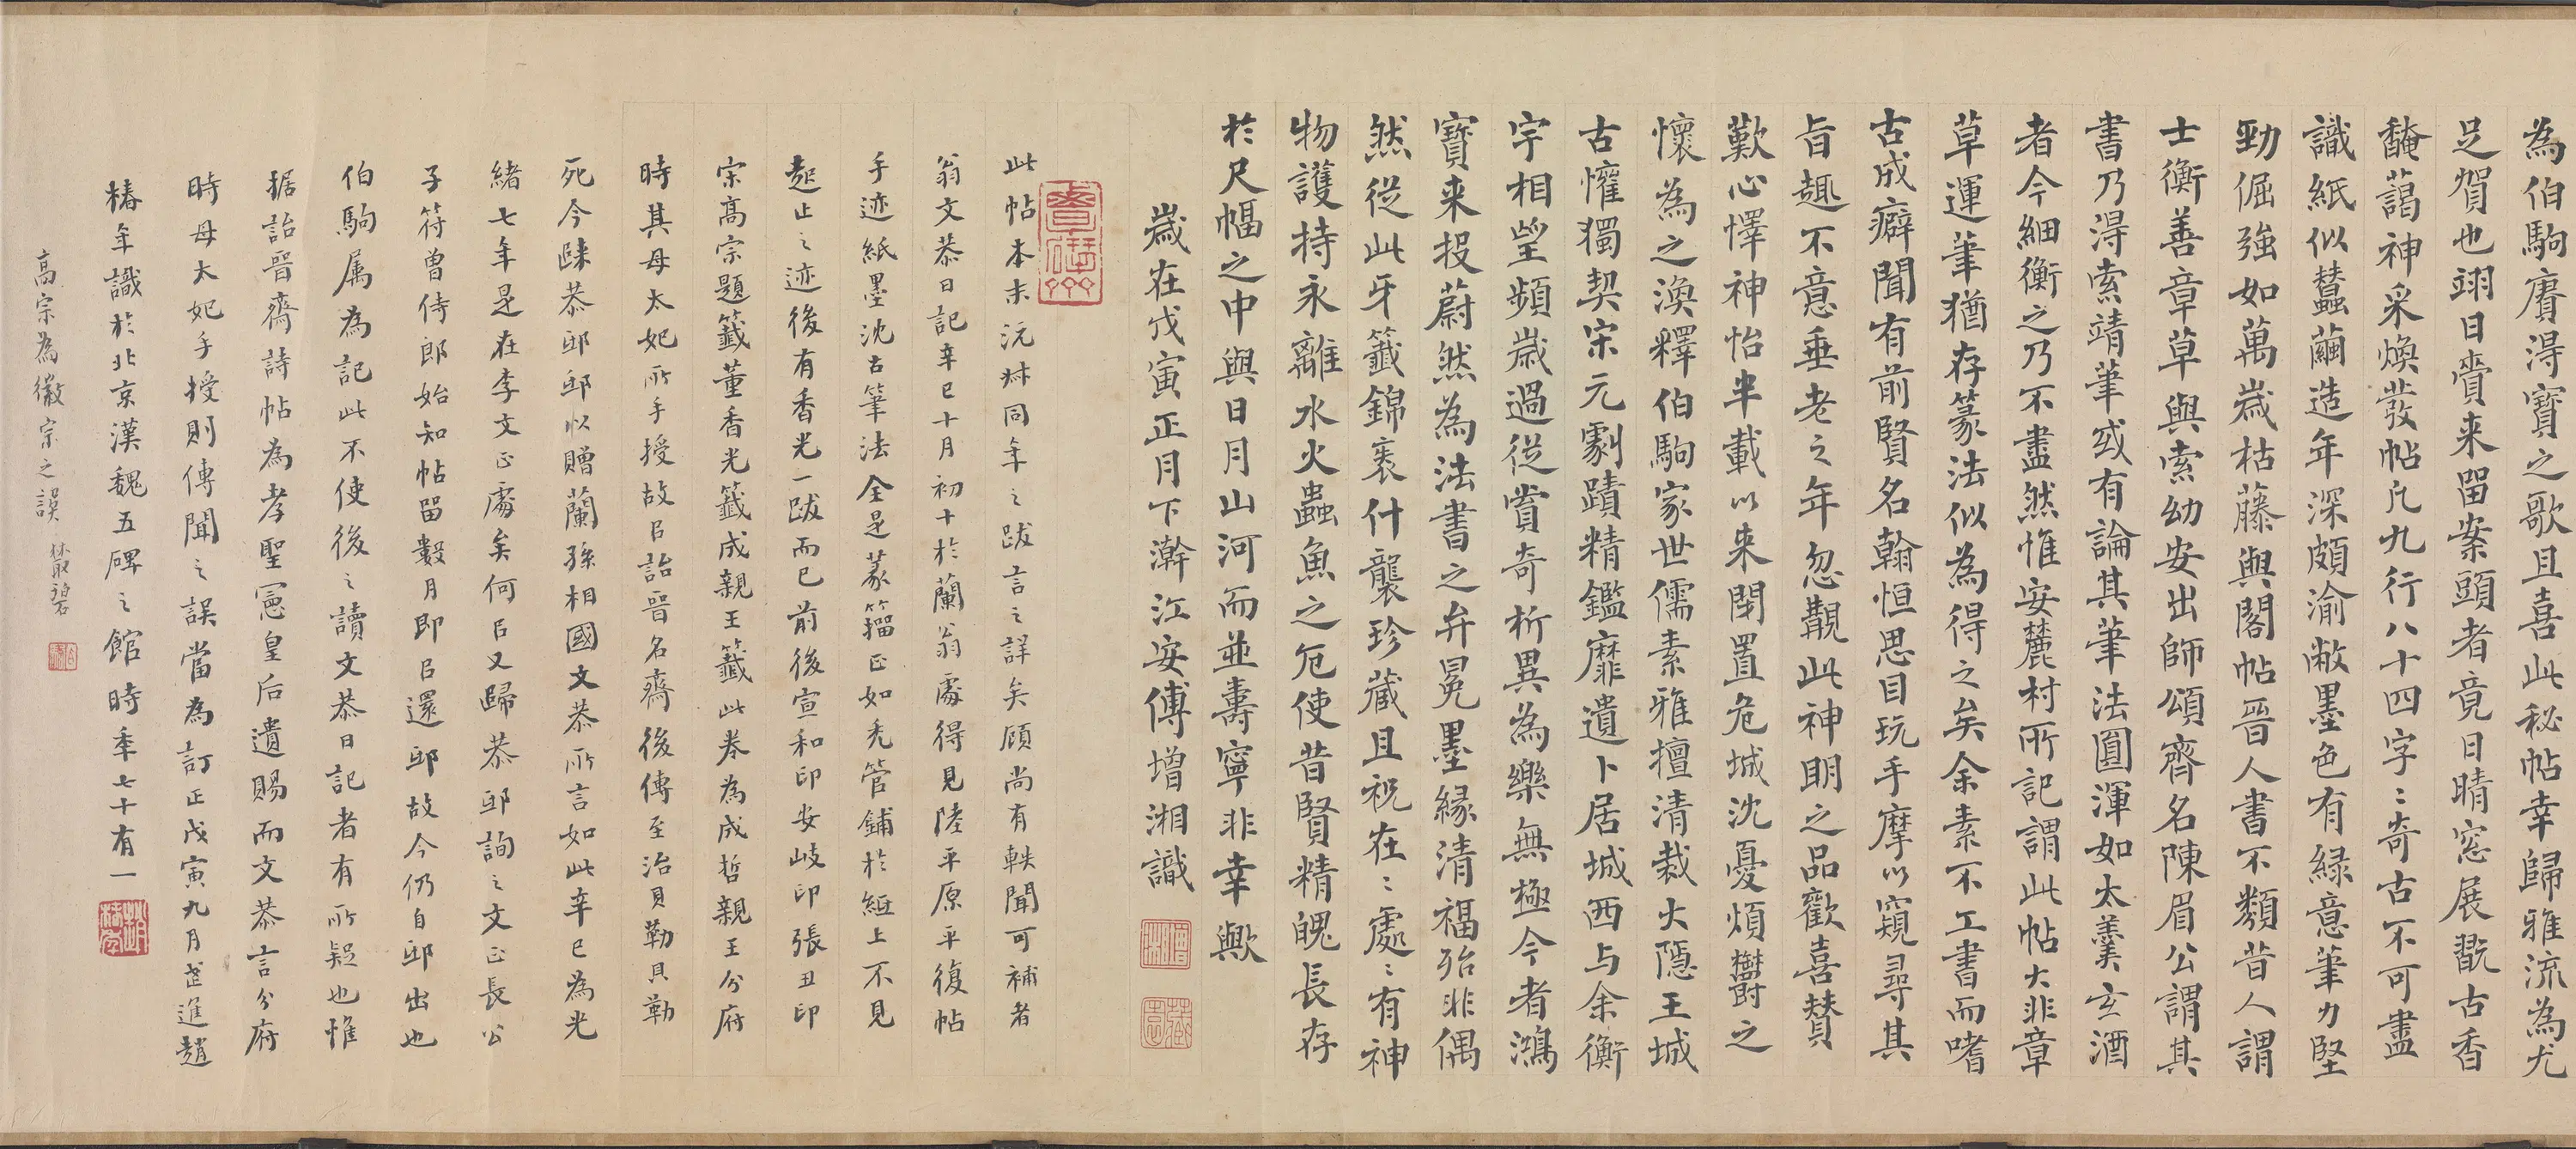 為伯駒賡得寶之歌且喜此秘帖幸歸雅流為尤
足賀也翊日賫来留案頭者竟日晴窓展翫古香
馣藹神采煥發帖凡九行八十四字〻奇古不可盡
識紙似蠶繭造年深頗渝敝墨色有緑意筆力堅
勁倔強如萬歲枯藤與閣帖晉人書不類昔人謂
士衡善章草與索幼安出師頌齊名陳眉公謂其
書乃得索靖筆或有論其筆法圓渾如太羹玄酒
者今細衡之乃不盡然惟安麓村所記謂此帖大非章
草運筆猶存篆法似為得之矣余素不工書而嗜
古成癖聞有前賢名翰恒思目玩手摩以窺尋其
旨趣不意垂老之年忽覩此神明之品歡喜贊
歎心懌神怡半載以来閉置危城沈憂煩鬱之
懷為之渙釋伯駒家世儒素雅擅清裁大隱王城
古懽獨契宋元劇蹟精鑑靡遺卜居城西与余衡
宇相望頻歲過從賞奇析異為樂無極今者鴻
寶来投蔚然為法書之弁冕墨緣清福殆非偶
然從此牙籤錦裹什襲珍藏且祝在〻處〻有神
物護持永離水火蟲魚之厄使昔賢精魄長存
於尺幅之中與日月山河而並壽寧非幸歟
歲在戊寅正月下澣江安傅增湘識
此帖本末沅叔同年之跋言之詳矣顧尚有軼聞可補者
翁文恭日記辛巳十月初十於蘭翁處得見陸平原平復帖
手迹紙墨沈古筆法全是篆籀正如秃管鋪於紙上不見
起止之迹後有香光一跋而已前後宣和印安岐印張丑印
宗高宗題籤董香光籤成親王籤此券為成哲親王分府
時其母太妃所手授故㠯詒晉名齋後傳至治貝勒貝勒
死今歸恭邸邸以贈蘭孫相國文恭所言如此辛巳為光
緒七年是在李文正處矣何㠯又歸恭邸詢之文正長公
子符曾侍郎始知帖留數月即㠯還邸故今仍自邸出也
伯駒属為記此不使後之讀文恭日記者有所疑也惟
据詒晉齋詩帖為孝聖憲皇后遺賜而文恭言分府
時母太妃手授則傳聞之誤當為訂正戊寅九月武進趙
椿年識於北京漢魏五碑之館時年七十有一
高宗為徽宗之誤